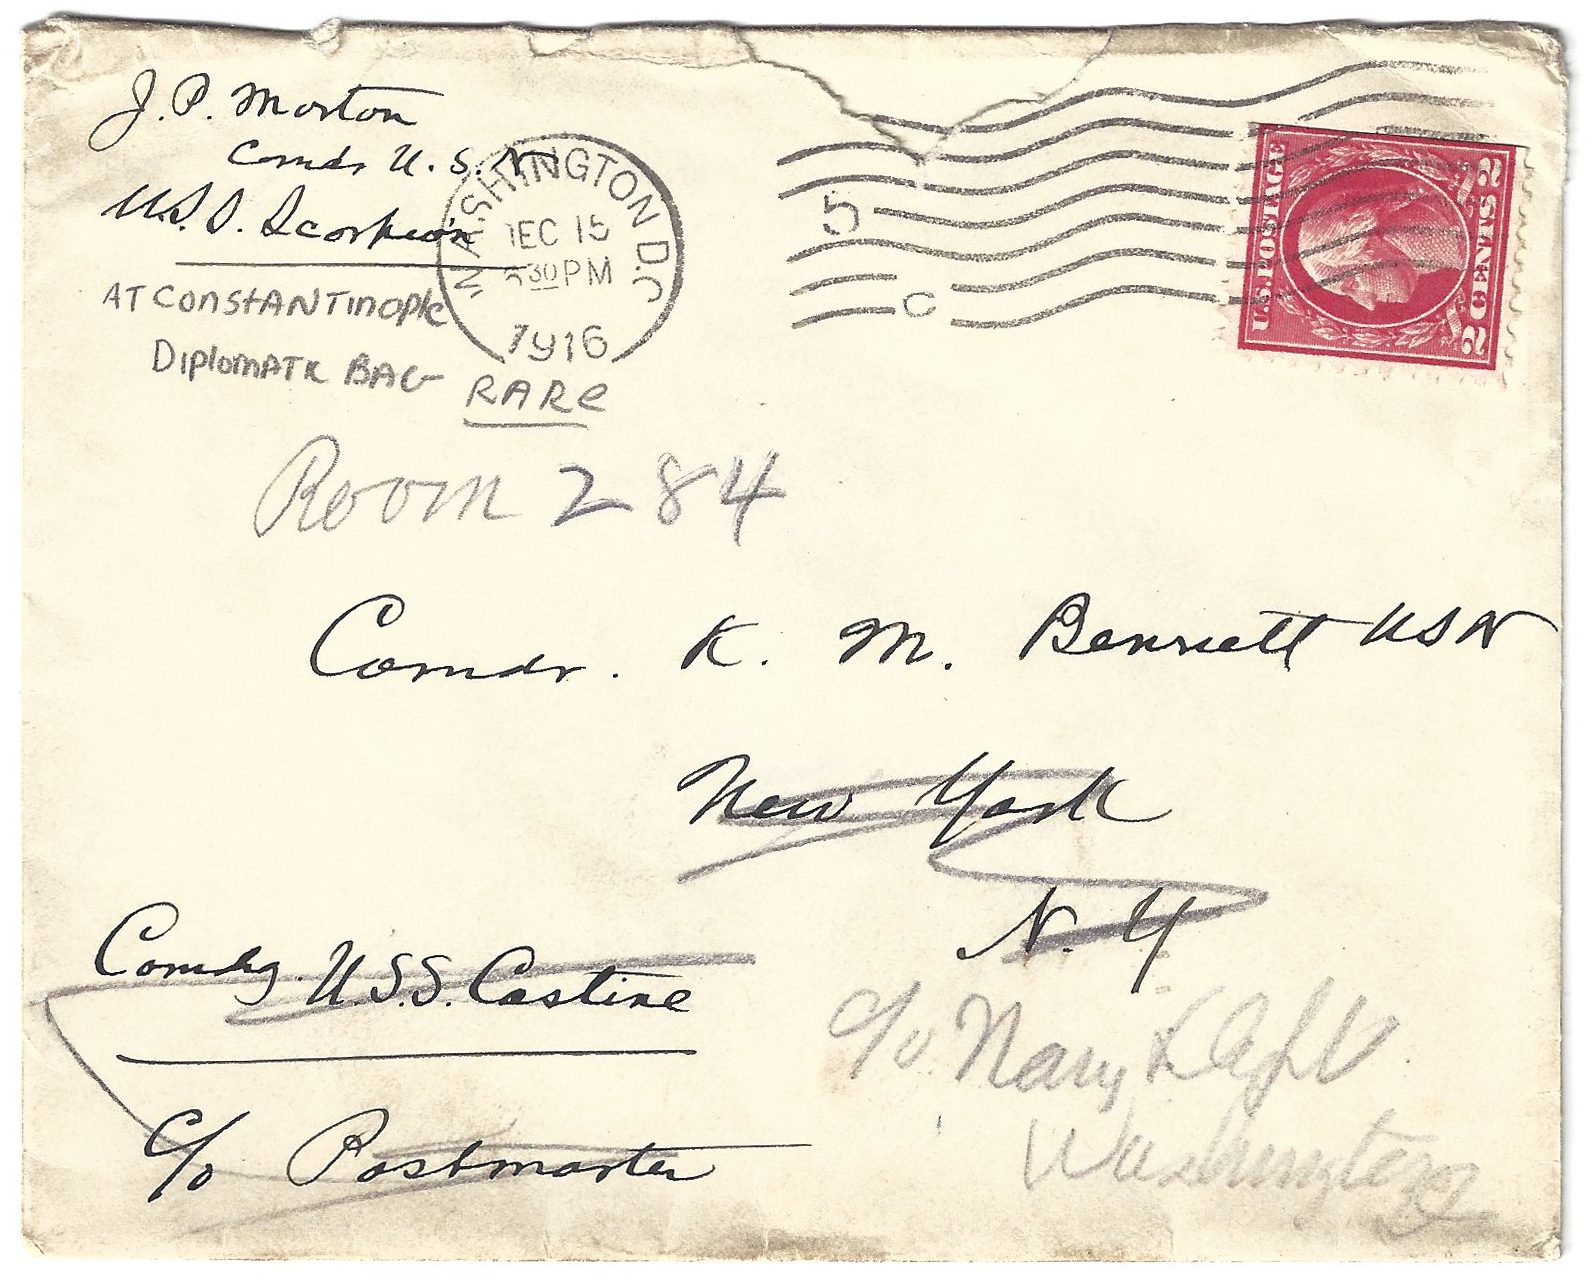 J. P. Morton
Comdr U. S. N
U.S.S. Scorpion
AT CONSTANTINOPle
DIPLOMATIC BAG
RARE
WASHINGTON D.C.
DEC 15
30 PM
1916
5
C
U.S. POSTAGE
2 CENTS 2
Room 284
Comdr. K. M. Bennett USN
New York
N. Y
Comdg. U.S.S. Castine
c/o Postmaster
c/o Navy Dept
Washington